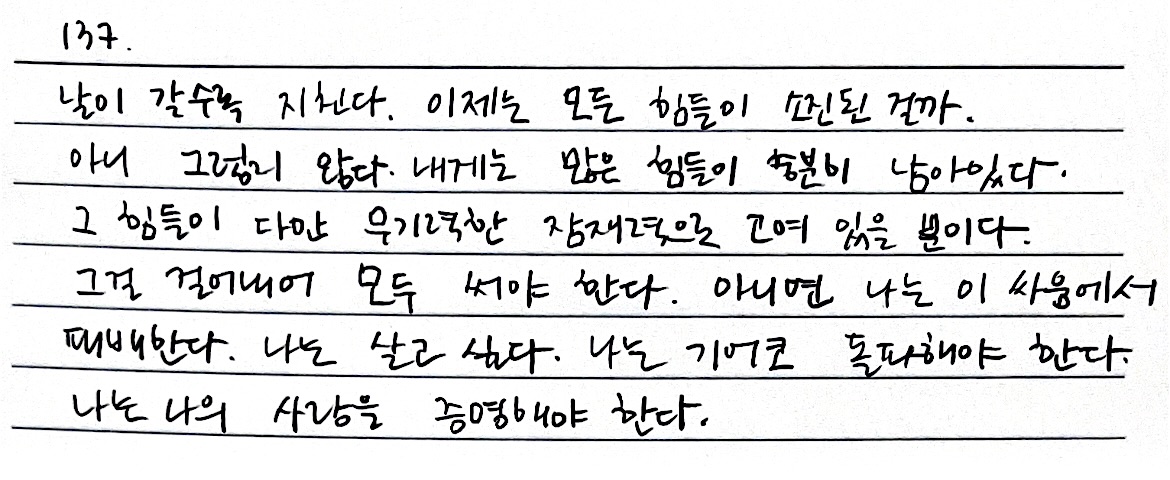 137.
날이 갈수록 지친다. 이제는 모든 힘들이 소진된 걸까.
아니 그렇지 않다. 내게는 많은 힘들이 충분히 남아있다.
그 힘들이 다만 무기력한 잠재력으로 고여 있을 뿐이다.
그걸 걷어내어 모두 써야 한다. 아니면 나는 이 싸움에서
패배한다. 나는 살고 싶다. 나는 기어코 돌파해야 한다.
나는 나의 사랑을 증명해야 한다.